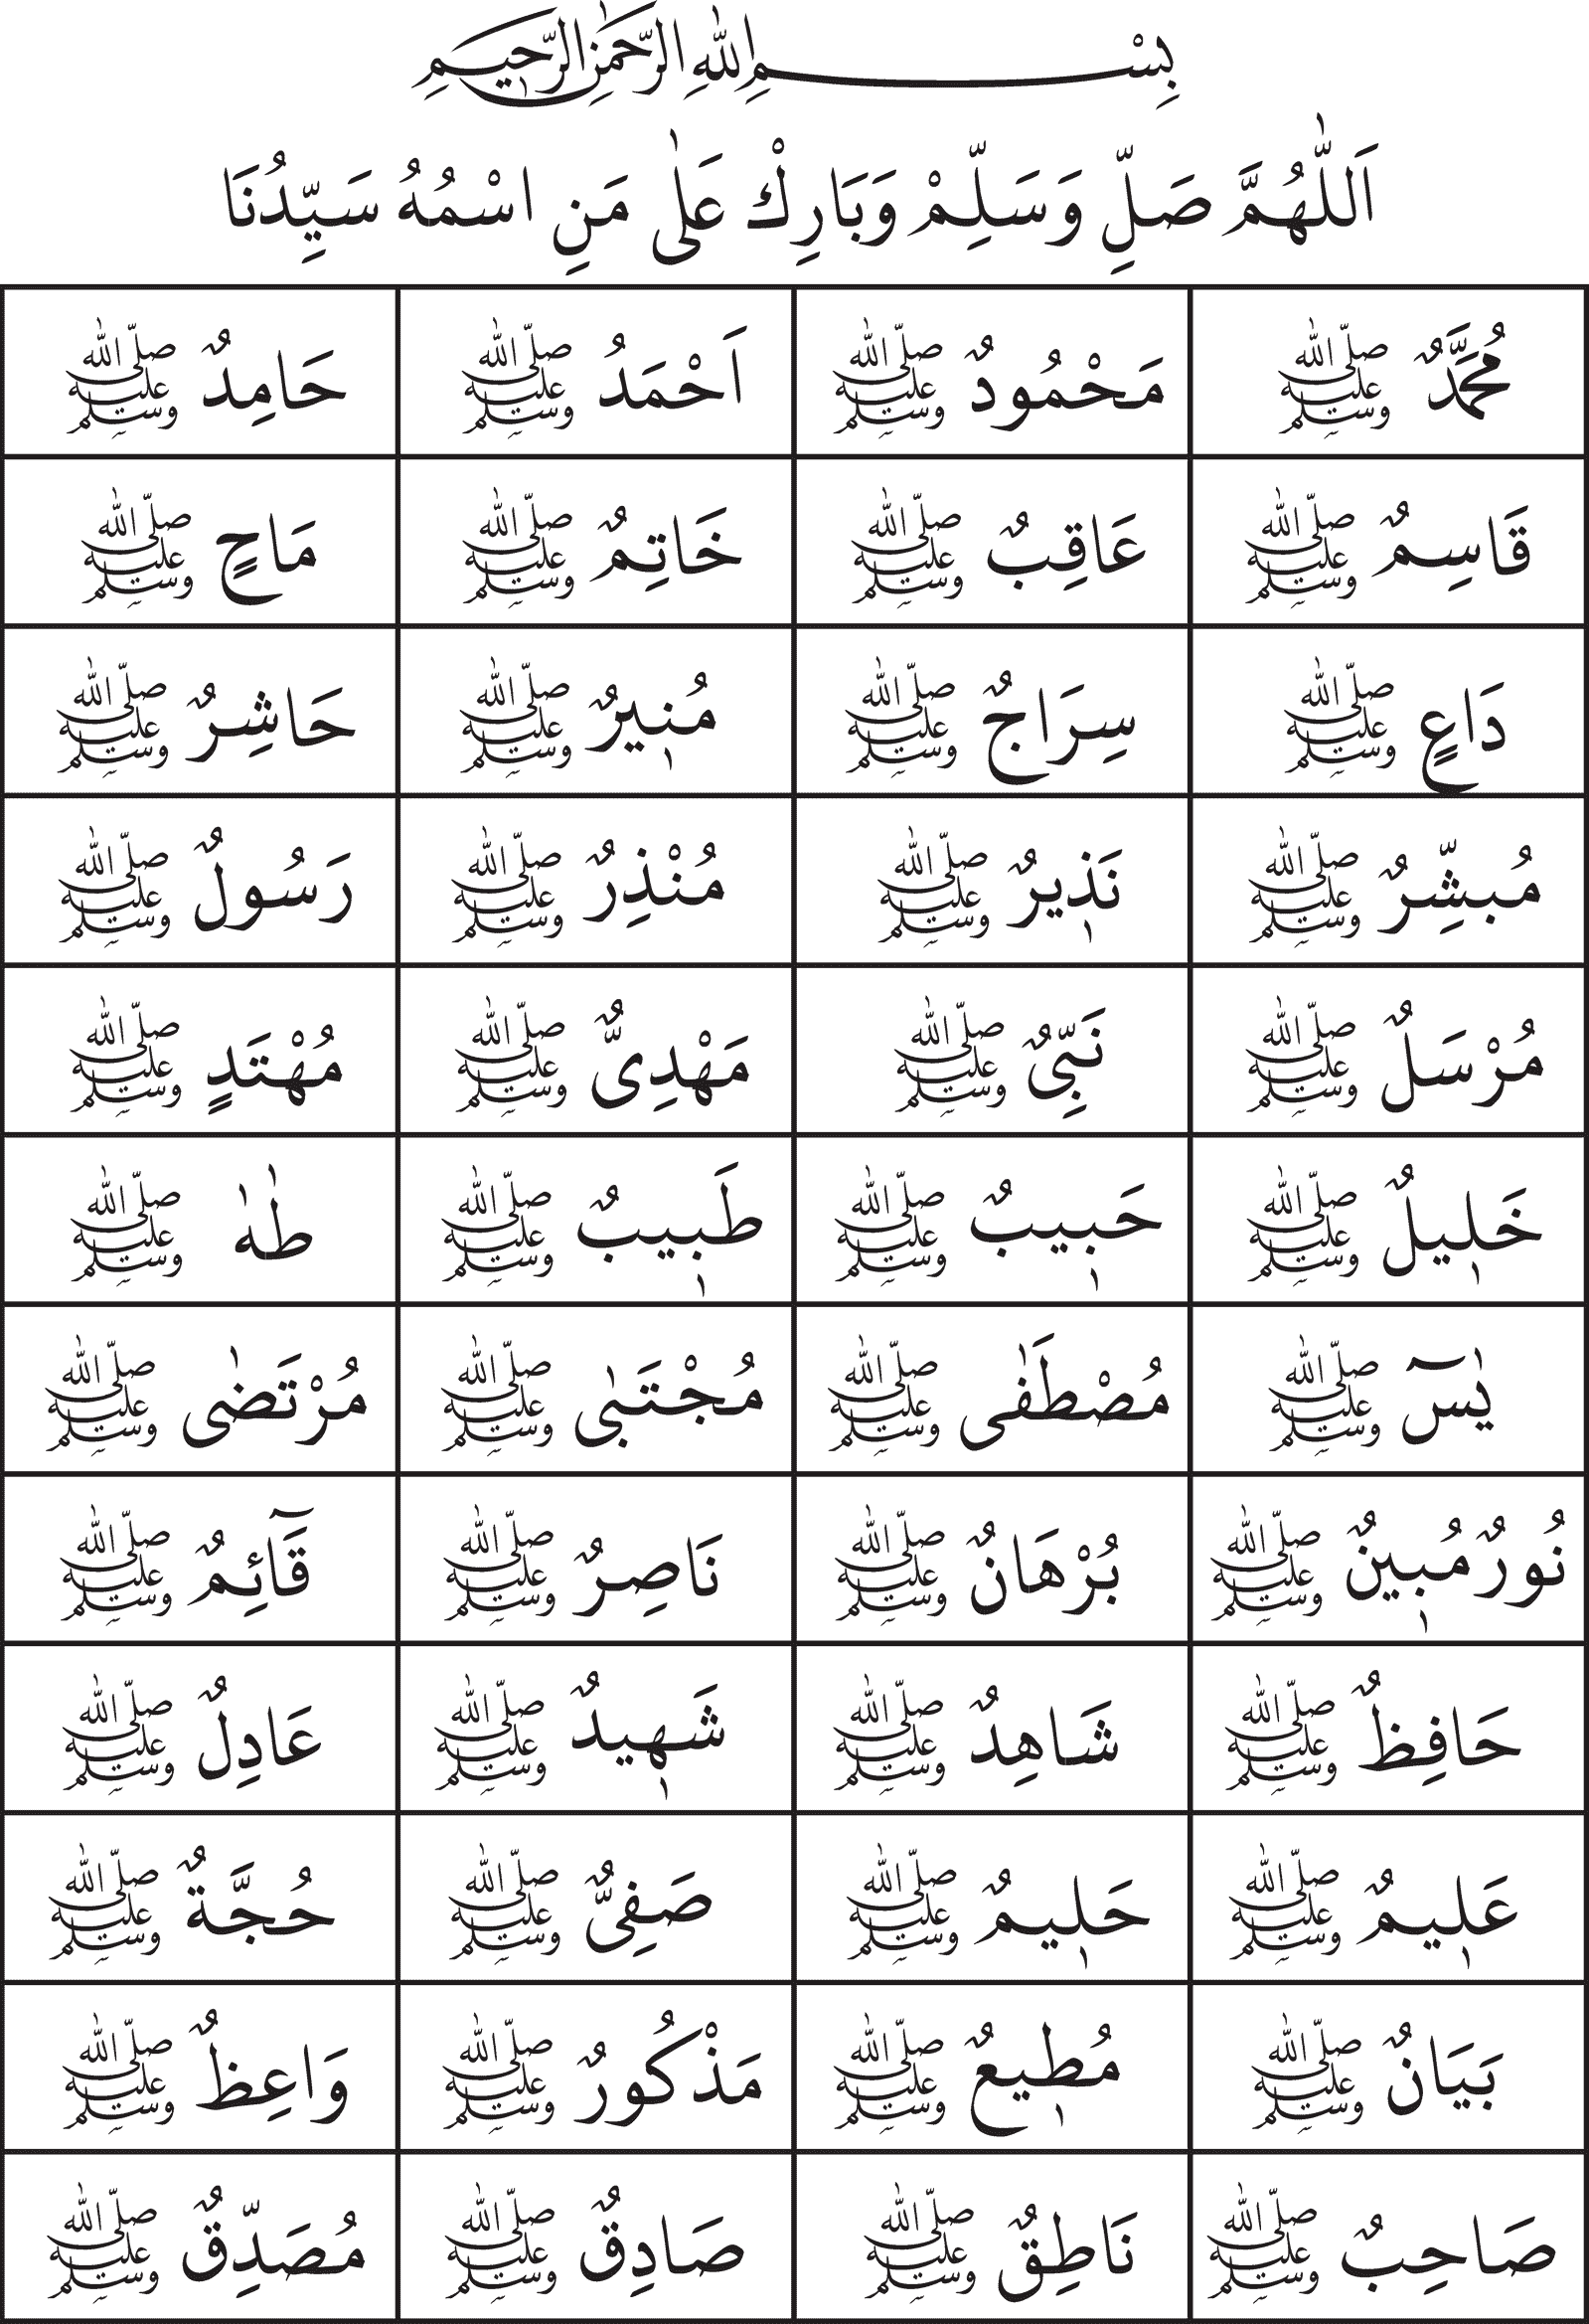 بِسْمِ اللّٰهِ الرَّحْمٰنِ الرَّحِيْمِ
اَللّٰهُمَّ صَلِّ وَسَلِّمْ وَبَارِكْ عَلٰى مَنِ اسْمُهُ سَيِّدُنَا
مُحَمَّدٌ صلّى الله عليه وسلّم مَحْمُودٌ صلّى الله عليه وسلّم اَحْمَدُ صلّى الله عليه وسلّم حَامِدٌ صلّى الله عليه وسلّم
قَاسِمٌ صلّى الله عليه وسلّم عَاقِبٌ صلّى الله عليه وسلّم خَاتِمٌ صلّى الله عليه وسلّم مَاحٍ صلّى الله عليه وسلّم
دَاعٍ صلّى الله عليه وسلّم سِرَاجٌ صلّى الله عليه وسلّم مُنٖيرٌ صلّى الله عليه وسلّم حَاشِرٌ صلّى الله عليه وسلّم
مُبشِّرٌ صلّى الله عليه وسلّم نَذٖيرٌ صلّى الله عليه وسلّم مُنْذِرٌ صلّى الله عليه وسلّم رَسُولٌ صلّى الله عليه وسلّم
مُرْسَلٌ صلّى الله عليه وسلّم نَبِّىٌ صلّى الله عليه وسلّم مَهْدِىٌّ صلّى الله عليه وسلّم مُهْتَدٍ صلّى الله عليه وسلّم
خَلٖيلٌ صلّى الله عليه وسلّم حَبٖيبٌ صلّى الله عليه وسلّم طَبٖيبٌ صلّى الله عليه وسلّم طٰهٰ صلّى الله عليه وسلّم
يٰسٓ صلّى الله عليه وسلّم مُصْطَفٰى صلّى الله عليه وسلّم مُجْتَبٰى صلّى الله عليه وسلّم مُرْتَضٰى صلّى الله عليه وسلّم
نُورٌ مُبٖينٌ صلّى الله عليه وسلّم بُرْهَانٌ صلّى الله عليه وسلّم نَاصِرٌ صلّى الله عليه وسلّم قَآئِمٌ صلّى الله عليه وسلّم
حَافِظٌ صلّى الله عليه وسلّم شَاهِدٌ صلّى الله عليه وسلّم شَهٖيدٌ صلّى الله عليه وسلّم عَادِلٌ صلّى الله عليه وسلّم
عَلٖيمٌ صلّى الله عليه وسلّم حَلٖيمٌ صلّى الله عليه وسلّم صَفِىٌّ صلّى الله عليه وسلّم حُجَّةٌ صلّى الله عليه وسلّم
بَيَانٌ صلّى الله عليه وسلّم مُطٖيعٌ صلّى الله عليه وسلّم مَذْكُورٌ صلّى الله عليه وسلّم وَاعِظٌ صلّى الله عليه وسلّم
صَاحِبٌ صلّى الله عليه وسلّم نَاطِقٌ صلّى الله عليه وسلّم صَادِقٌ صلّى الله عليه وسلّم مُصَدِّقٌ صلّى الله عليه وسلّم